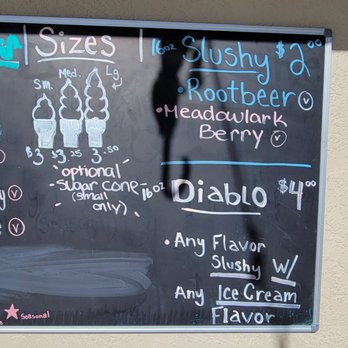 Sizes
Sm. Med. Lg.
$3 $3.25 3.50
optional
-sugar cone-
(small only)
16oz Slushy $2.00
• Rootbeer V
• Meadowlark Berry V
16oz Diablo $4.00
• Any Flavor
Slushy W/
Any Ice Cream
Flavor
Seasonal